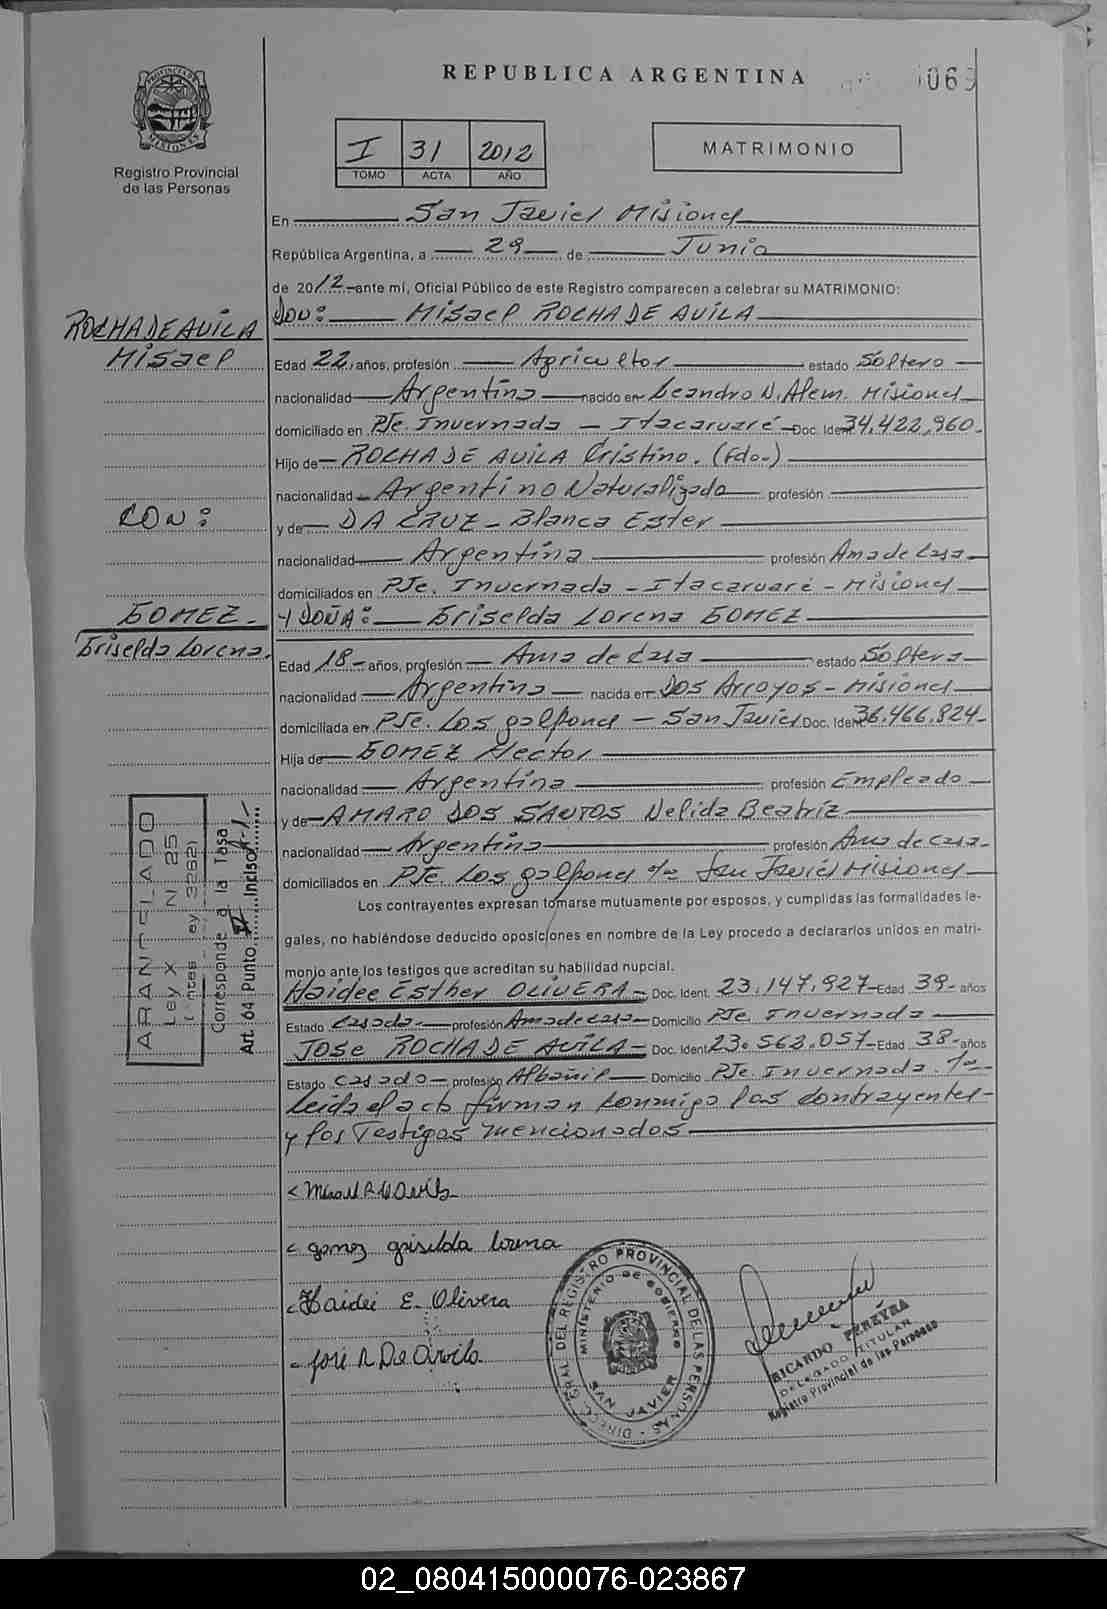 REPUBLICA ARGENTINA
PROVINCIA DE
MISIONES
Registro Provincial
de las Personas
I 31 2012
TOMO ACTA AÑO
MATRIMONIO
En San Javier Misiones
República Argentina, a 29 de Junio
de 2012 ante mí, Oficial Público de este Registro comparecen a celebrar su MATRIMONIO:
DON: Misael ROCHA DE AVILA
ROCHA DE AVILA
Misael
Edad 22 años, profesión Agricultor estado Soltero
nacionalidad Argentina nacido en Leandro N. Alem. Misiones
domiciliado en Pje. Invernada - Itacaruaré Doc. Ident. 34.422.960.
Hijo de ROCHA DE AVILA Cristino. (Fdo.)
nacionalidad Argentino Naturalizado profesión
CON:
y de DA CRUZ - Blanca Ester
nacionalidad Argentina profesión Ama de Casa
domiciliados en Pje. Invernada - Itacaruaré - Misiones
GOMEZ
Griselda Lorena.
Y DOÑA: Griselda Lorena GOMEZ
Edad 18 años, profesión Ama de Casa estado Soltera
nacionalidad Argentina nacida en Dos Arroyos - Misiones
domiciliada en Pje. Los galpones - San Javier Doc. Ident. 36.466.824
Hija de GOMEZ Hector
nacionalidad Argentina profesión Empleado
y de AMARO DOS SANTOS Nelida Beatriz
nacionalidad Argentina profesión Ama de Casa
domiciliados en Pje. Los galpones San Javier Misiones
ARANCELADO
Ley X N 25
Corresponde a la Tasa
Art. 64 Punto Inciso
Los contrayentes expresan tomarse mutuamente por esposos, y cumplidas las formalidades le-
gales, no habiéndose deducido oposiciones en nombre de la Ley procedo a declararlos unidos en matri-
monio ante los testigos que acreditan su habilidad nupcial.
Haidee Esther OLIVERA Doc. Ident. 23.147.927 Edad 39 años
Estado Casada profesión Ama de casa Domicilio Pje. Invernada
JOSE ROCHA DE AVILA Doc. Ident. 23.562.057 Edad 38 años
Estado Casado profesión Albañil Domicilio Pje. Invernada.
Leida el acta firman conmigo los contrayentes
y los Testigos mencionados
gomez griselda lorena
Haidei E. Olivera
José R De Avila
DIRECC. GRAL. DEL REGISTRO PROVINCIAL DE LAS PERSONAS
MINISTERIO DE GOBIERNO
SAN JAVIER
RICARDO PEREYRA
DELEGADO TITULAR
Registro Provincial de las Personas
02_080415000076-023867